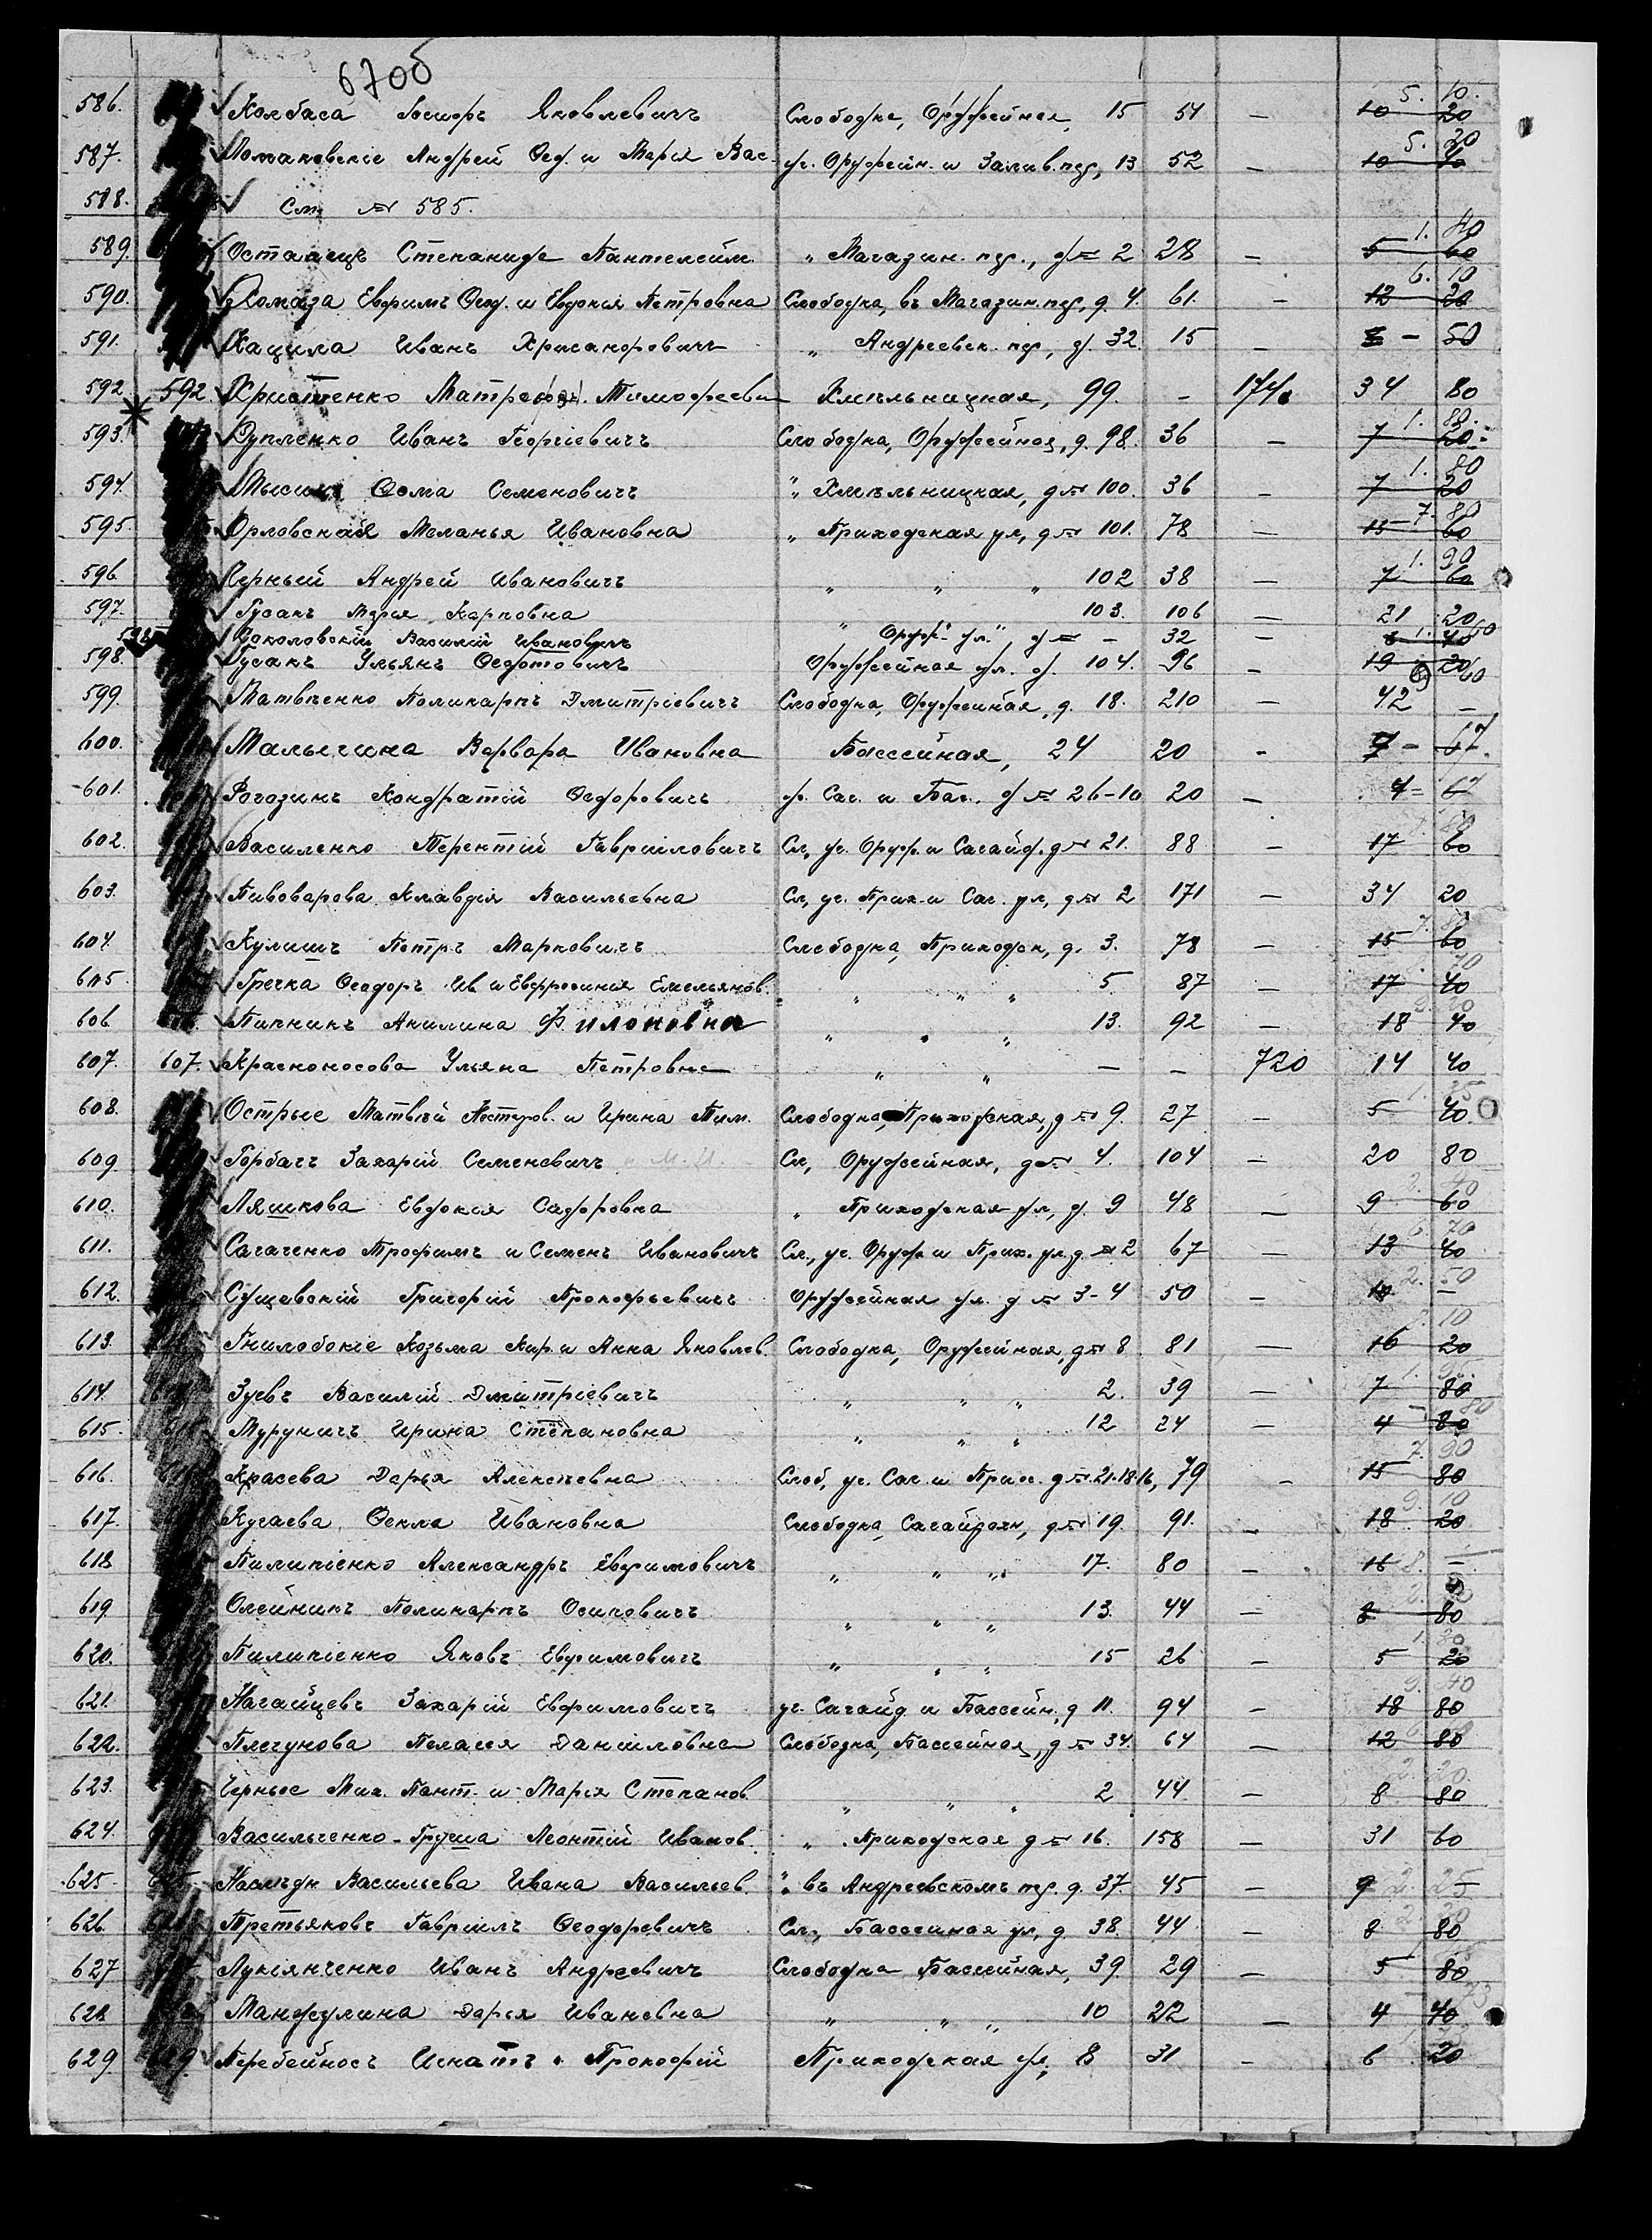 670об
586. Колбаса Іосифъ Яковлевичъ Слободка, Оружейная, 15 51 — 10 20 5. 10.
587. Ломаковскіе Андрей Ѳед. и Марія Вас. уг. Оружейн. и Залив. пер., 13 52 — 10 40 5. 20
588. См. № 585.
589. Остапецъ Степанида Пантелейм. " Магазин. пер., д № 2 28 — 5 60 1. 40
590. Ломаза Ефримъ Ѳед. и Евдокія Петровна Слободка, въ Магазин. пер, д. 4. 61. — 12 20 6. 10
591. Кацила Иванъ Хрисанфовичъ " Андреевск. пер., д. 32. 15 — 50
592 592. Христенко Матрена Тимофеевна Хмѣльницкая, 99. — 174. 34 80
593. Купленко Иванъ Георгіевичъ Слободка, Оружейная, д. 98. 36 — 7 20 1. 80.
594. Ѳома Семеновичъ " Хмѣльницкая, д № 100. 36 — 7 20 1. 80
595. Орловская Меланья Ивановна " Приходская ул, д № 101. 78 — 15 60 7. 80
596 Черный Андрей Ивановичъ " " " 102 38 — 7 60 1. 90
597. Гусакъ Марія Карповна " " " 103. 106 — 21 20
Соколовскій Василій Ивановичъ Оруж. ул., д № — 32 — 6 40 1. 60
598. Гусакъ Ульянъ Ѳедотовичъ Оружейная ул. д. 104. 96 — 19 20
599. Матвѣенко Поликарпъ Дмитріевичъ Слободка, Оружейная, д. 18. 210 — 42 —
600. Малыгина Варвара Ивановна Бассейная, 24 20 — 67
601. Рогозинъ Кондратій Ѳедоровичъ у. Саг. и Бас. д № 26-10 20 — 4 67
602. Василенко Терентій Гавриловичъ Сл, уг. Оруж. и Сагайд. д № 21. 88 — 17 60
603. Пивоварова Клавдія Васильевна Сл, уг. Прих. и Саг. ул, д № 2 171 — 34 20
604. Кулишъ Петръ Марковичъ Слободка, Приходск, д. 3. 78 — 15 60
605. Гречка Ѳеодоръ Ив и Евфросинія Емельянов. " " " 5. 87 — 17 40
606. Пипникъ Акилина Филоновна " " " 13. 92 — 18 40
607. 607. Красноносова Ульяна Петровна " " — — 720 14 40
608. Острые Матвѣй Нестеров. и Ирина Тим. Слободка, Приходская, д № 9. 27 — 5 40
609 Горбачъ Захарій Семеновичъ и М. И. Сл, Оружейная, д № 4. 104 — 20 80
610. Ляшкова Евдокія Сидоровна " Приходская ул, д. 9 48 — 9 60 2. 40
611. Сагаченко Трофимъ и Семенъ Ивановичъ Сл., уг. Оруж и Прих. ул. д. № 2 67 — 13 40 6. 70
612. Сущевскій Григорій Прокофьевичъ Оружейная ул. д № 3-4 50 — 10 — 2. 50
613. Гнилобокіе Козьма Кир. и Анна Яковлев. Слободка, Оружейная, д № 8 81 — 16 20
614. Зуевъ Василій Дмитріевичъ " " " 2. 39 — 7 80 1. 95.
615. Мурунигъ Ирина Степановна " " " 12 24 — 4 80
616. Красева Дарья Алексѣевна Слоб, уг. Саг. и Прих. д № 21.18.16, 79 — 15 80 7. 90
617. Кугаева Ѳекла Ивановна Слободка, Сагайдачн, д № 19. 91. — 18 20 9. 10
618 Пилипіенко Александръ Ефимовичъ " " " 17. 80 — 16 — 8. —
619 Олейникъ Поликарпъ Осиповичъ " " " 13. 44 — 8 80
620. Пилипіенко Яковъ Ефимовичъ " " " 15 26 — 5 20 1. 30
621. Нагайцевъ Захарій Ефимовичъ уг. Сагайд и Бассейн., д 11. 94 — 18 80 9. 40
622. Плегунова Пелагея Даниловна Слободка, Бассейная, д № 34. 64 — 12 80
623. Черные Мих. Пант. и Марія Степанов. " " " 2 44 — 8 80 2. 20.
624. Васильченко-Груша Леонтій Иванов. " Приходская д № 16. 158 — 31 60
625 Наслѣдн Васильева Ивана Васильев. " въ Андреевскомъ пер. д. 37. 45 — 9 — 2. 25
626. Третьяковъ Гавріилъ Ѳеодоровичъ Сл., Бассейная ул, д. 38. 44 — 8 80
627 Лукьянченко Иванъ Андреевичъ Слободка Бассейная, 39. 29 — 5 80
628 Манжулина Дарья Ивановна " " " 10 22 — 4 40
629. Перебейносъ Игнатъ и Прокофій Приходская ул, 8 31 — 6 20